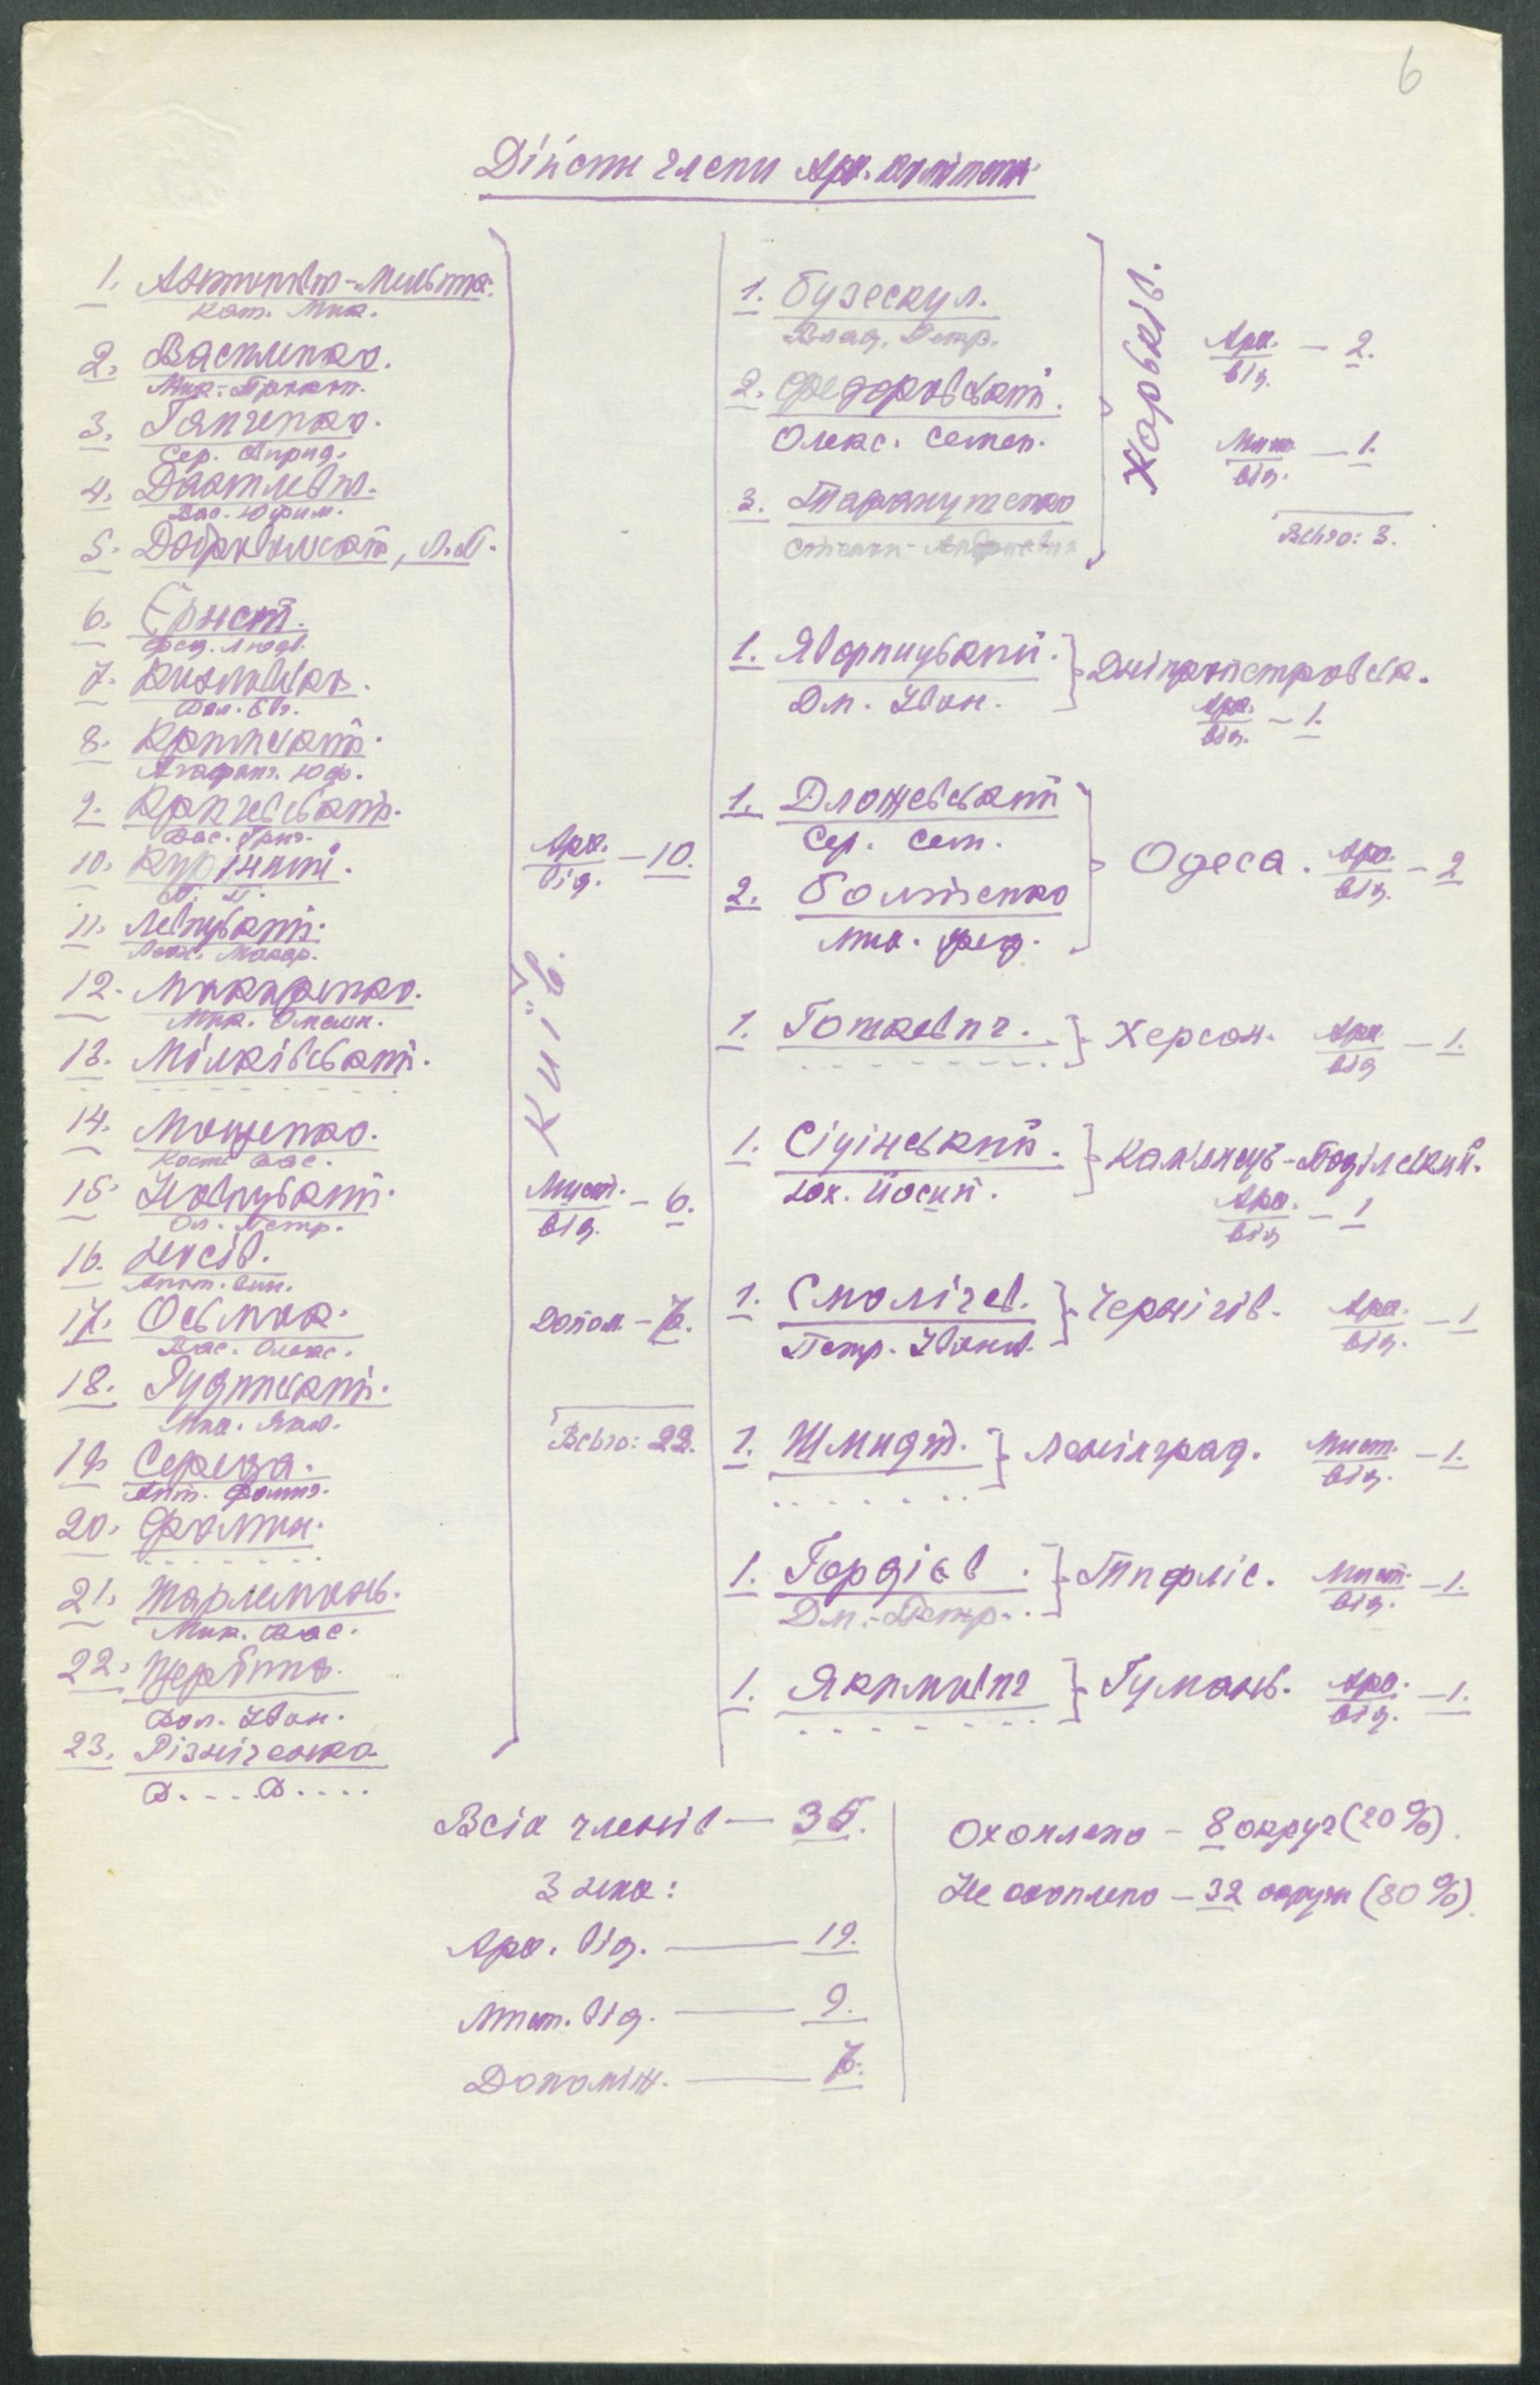 6
Дійсні члени Арх. комітету
1. Антонович-Мельник.
Кат. Мик.
2. Василенко.
Мик. Прокоп.
3. Гамченко.
Сер. Свирид.
4. Данилевич.
Вас. Юхим.
5. Добровольський, Л.П.
6. Ернст.
Фед. Людв.
7. Козловська.
Вал. Євг.
8. Кримський.
Агафанг. Юф.
9. Кричевський.
Вас. Григ.
10. Курінний.
П. П.
11. Левицький.
Леон. Макар.
12. Макаренко.
Мик. Омелян.
13. Мілківський.
14. Мощенко.
Кость Вас.
15. Новицький.
Ол. Петр.
16.
Ант. Вик.
17. Осьмак.
Вас. Олекс.
18. Рудинський.
Мих. Яков.
19. Середа.
Ант. Хомич.
20. Фомин.
21. Шарлемань.
Мик. Вас.
22. Щербина.
Вол. Іван.
23. Різніченко
В.... В....
Київ.
Арх. від. – 10.
Мист. від. – 6.
Допом. – 7.
Всього: 22.
1. Бузескул.
Влад. Петр.
2. Федоровський.
Олекс. Семен.
3. Таранушенко
Степан Андреевич
Харьків.
Арх. від. – 2.
Мист. від. – 1.
Всього: 3.
1. Яворницький.
Дм. Іван.
Дніпропетровськ.
Арх. від. – 1.
1. Дложевський
Сер. Сем.
2. Болтенко
Мих. Фед.
Одеса. Арх. від. – 2
1. Гошкевич. Херсон. Арх. від – 1.
1. Сіцінський.
Юх. Йосип.
Кам'янець-Подільский.
Арх. від – 1
1. Смолічев.
Петр. Іванов.
Чернігів. Арх. від. – 1
1. Шмидт. Ленінград. Мист. від. – 1.
1. Гордіев.
Дм. Петр.
Тифліс. Мист. від. – 1.
1. Якимович Гумань. Арх. від. – 1.
Всіх членів – 35.
З них:
Арх. від. – 19.
Мист. від. – 9.
Допоміж. – 7.
Охоплено – 8 округ (20%).
Не охоплено – 32 округи (80%).